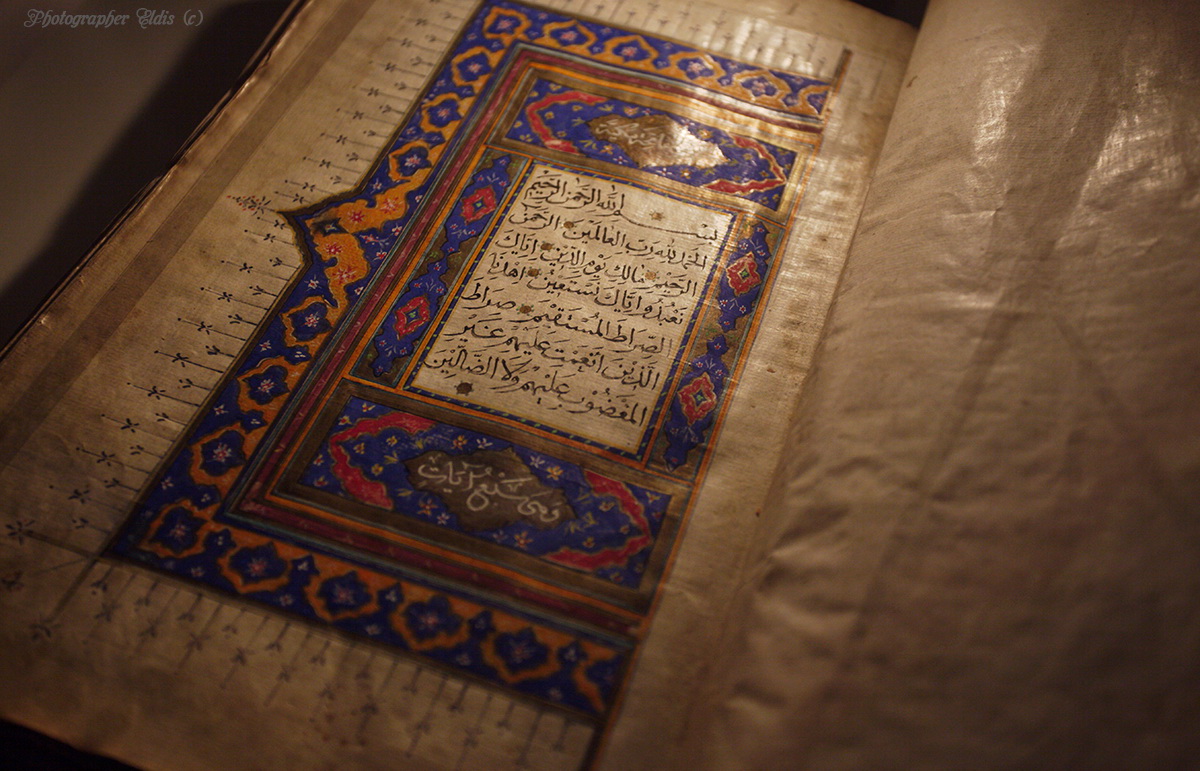 Photographer Eldis (c)
بسم الله الرحمن الرحيم
الحمد لله رب العالمين الرحمن
الرحيم مالك يوم الدين اياك
نعبد و اياك نستعين اهدنا
الصراط المستقيم صراط
الذين انعمت عليهم غير
المغضوب عليهم ولا الضالين
وهى سبع آيات